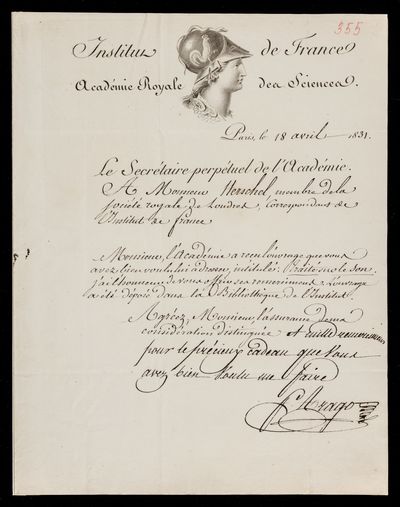 355
Institut de France
Académie Royale des Sciences.
Paris, le 18 avril 1831.
Le Secrétaire perpétuel de l'Académie.
A Monsieur Herschel, membre de la
société royale de Londres, correspondant de
l'Institut de france
Monsieur, l'Académie a reçu l'ouvrage que vous
avez bien voulu lui adresser, intitulé: Traité sur le Son.
j'ai l'honneur de vous offrir ses remerciments. L'ouvrage
a été déposé dans la Bibliothèque de l'Institut.
Agréez, Monsieur l'assurance de ma
considération distinguée et mille remerciments
pour le précieux cadeau que Vous
avez bien Voulu me faire
F. Arago